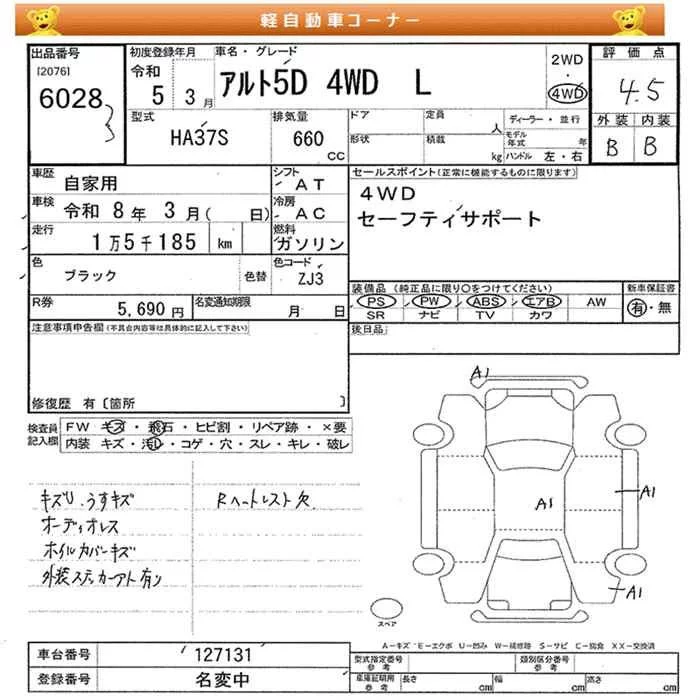 軽自動車コーナー
出品番号
[2076]
6028
初度登録年月
令和
5 3月
車名・グレード
アルト5D 4WD L
2WD
・
4WD
評価点
4.5
外装 内装
B B
型式
HA37S
排気量
660
CC
ドア
定員
人
形状
積載
kg
ディーラー・並行
モデル年式 年
ハンドル 左・右
車歴
自家用
シフト
AT
車検
令和 8年 3月( 日)
冷房
AC
走行
1万5千185 km
燃料
ガソリン
色
ブラック
色替
色コード
ZJ3
R券
5,690円
名変通知期限
月 日
セールスポイント(正常に機能するものに限ります)
4WD
セーフティサポート
装備品 (純正品に限り○をつけてください)
PS PW ABS エアB AW
SR ナビ TV カワ
新車保証書
有・無
後日品
注意事項申告欄(不具合内容等は具体的に記入して下さい)
修復歴 有〔箇所 〕
検査員
記入欄
FW キズ・飛石・ヒビ割・リペア跡・×要
内装 キズ・汚れ・コゲ・穴・スレ・キレ・破レ
キズU、うすキズ
オーディオレス
ホイルカバーキズ
外装ステッカーアト有り
Rヘットレスト欠
A1
A1
A1
A1
スペア
A-キズ E-エクボ U-凹み W-補修跡 S-サビ C-腐食 XX-交換済
車台番号
127131
登録番号
名変中
型式指定番号
参考
類別区分番号
参考
車庫証明用
参考
長さ cm
幅 cm
高さ cm